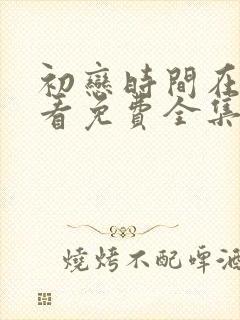 初戀時間在
看免費全集
燒烤不配啤酒